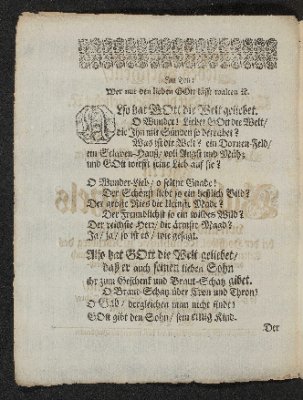 Im Ton:
Wer nur den lieben GOtt läst walten ꝛc.
Also hat GOtt die Welt geliebet.
O Wunder! Liebet GOtt die Welt/
die Ihn mit Sünden so betrübet?
Was ist die Welt? ein Dornen-Feld/
ein Sclaven-Hauß/ voll Angst und Müh;
und GOtt wirfft seine Lieb auf sie?
O Wunder-Lieb/ o seltne Gnade!
Der Schönst liebt so ein heßlich Bild?
Der gröste Ries die kleinste Made?
Der Freundlichst so ein wildes Wild?
Der reichste Herr/ die ärmste Magd?
Ja/ ja/ so ist es/ wie gesagt.
Also hat GOtt die Welt geliebet/
daß er auch seinen lieben Sohn
ihr zum Geschenk und Braut-Schatz gibet.
O Braut-Schatz über Kron und Thron!
O Lieb/ dergleichen man nicht findt!
GOtt gibt den Sohn/ sein einig Kind.
Der